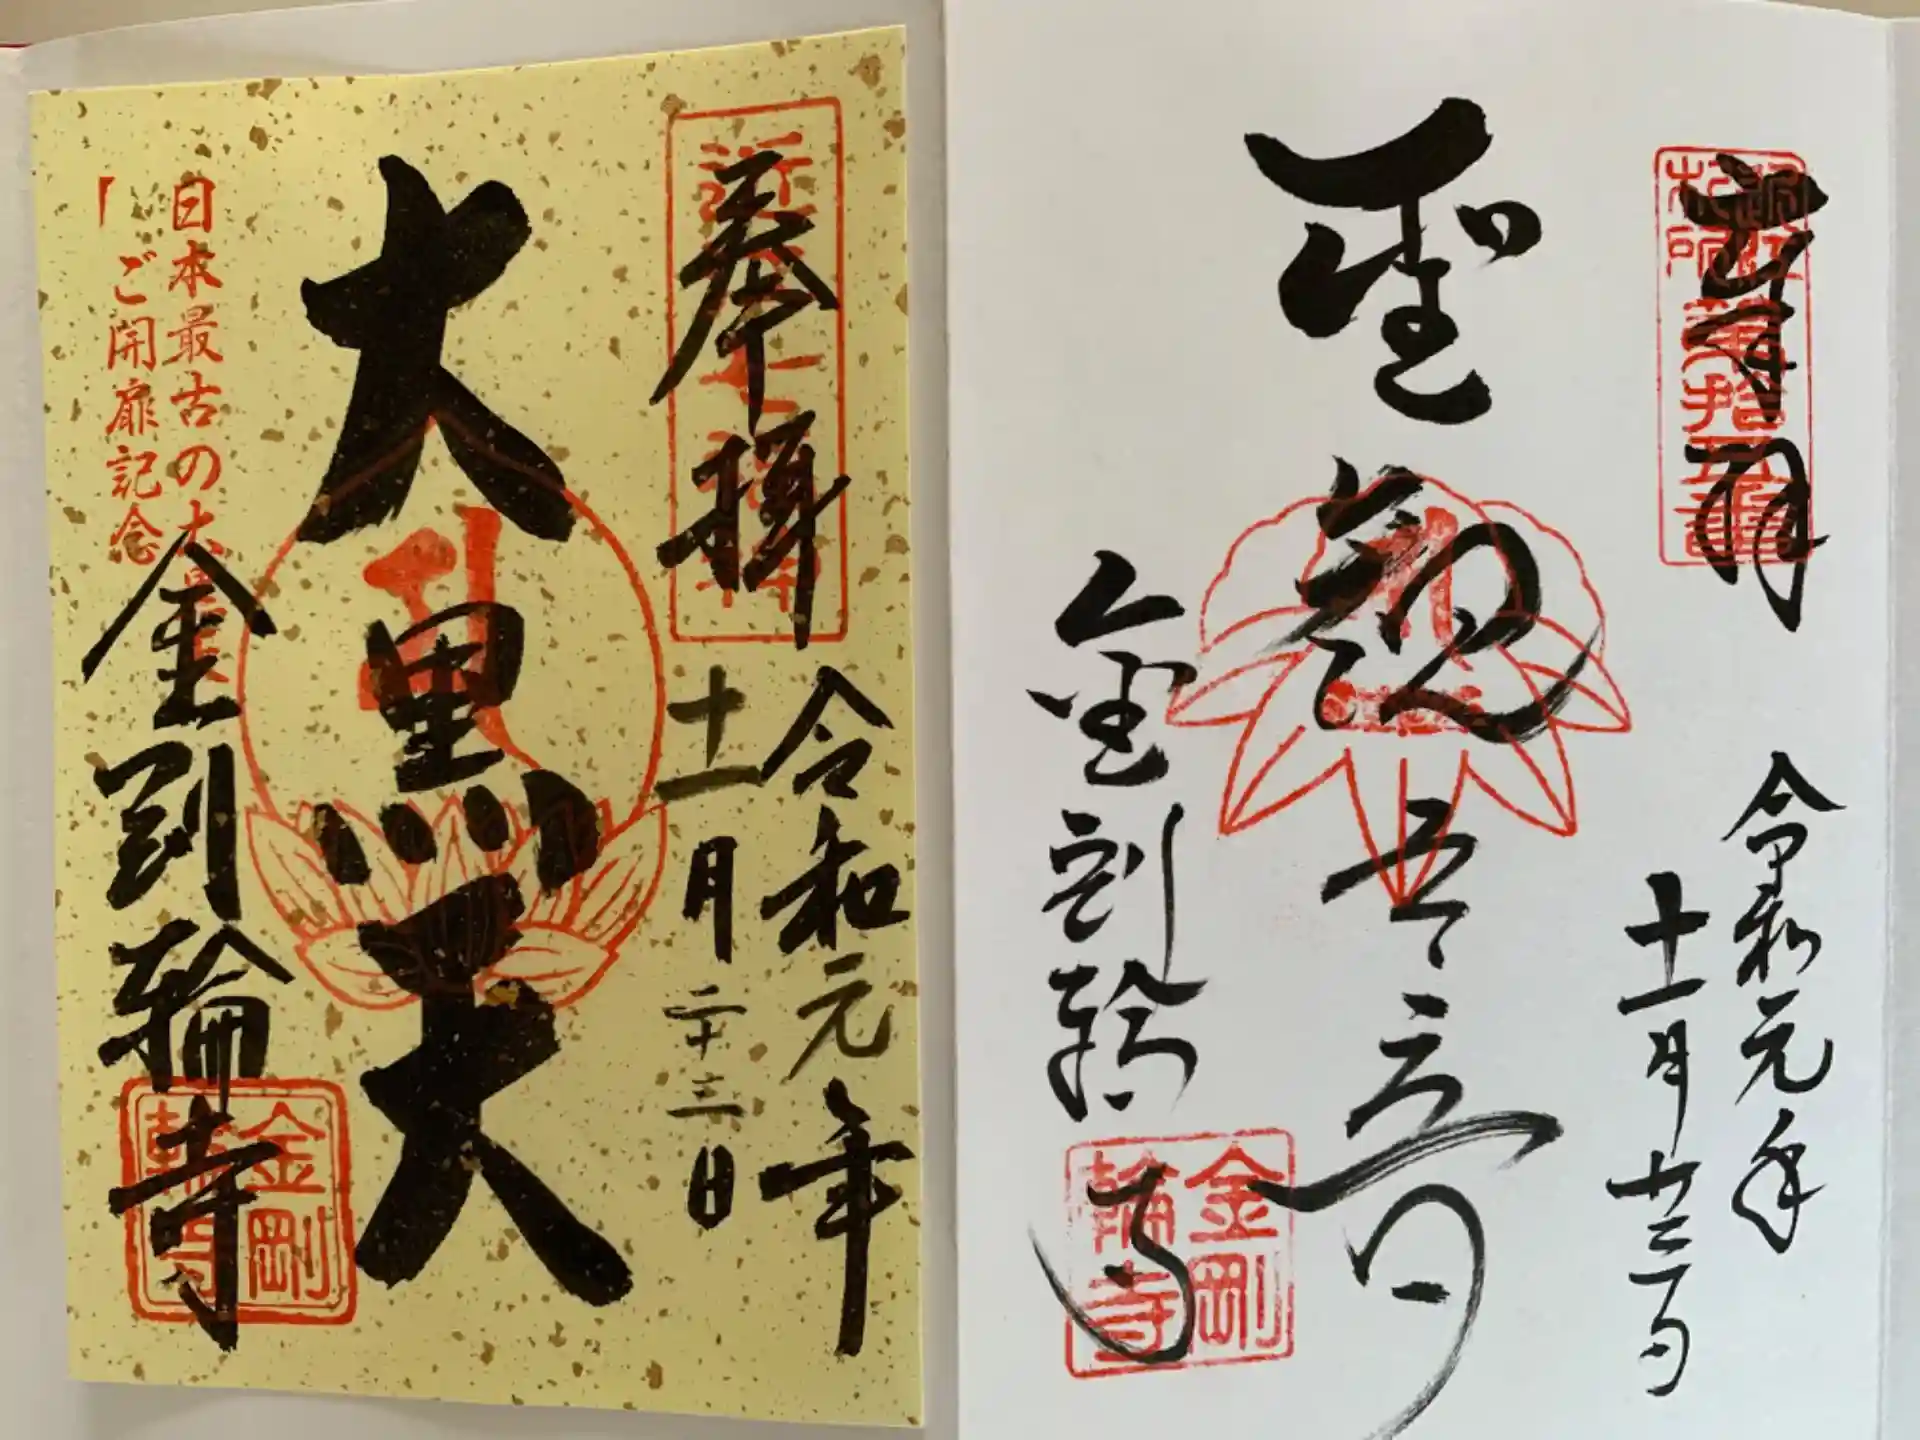 奉拝
札所第拾五番
令和元年
十一月廿三日
聖観
金剛輪寺
金剛輪寺
奉拝
令和元年
十一月二十三日
大黒天
日本最古の大黒
「ご開扉記念
金剛輪寺
金剛輪寺